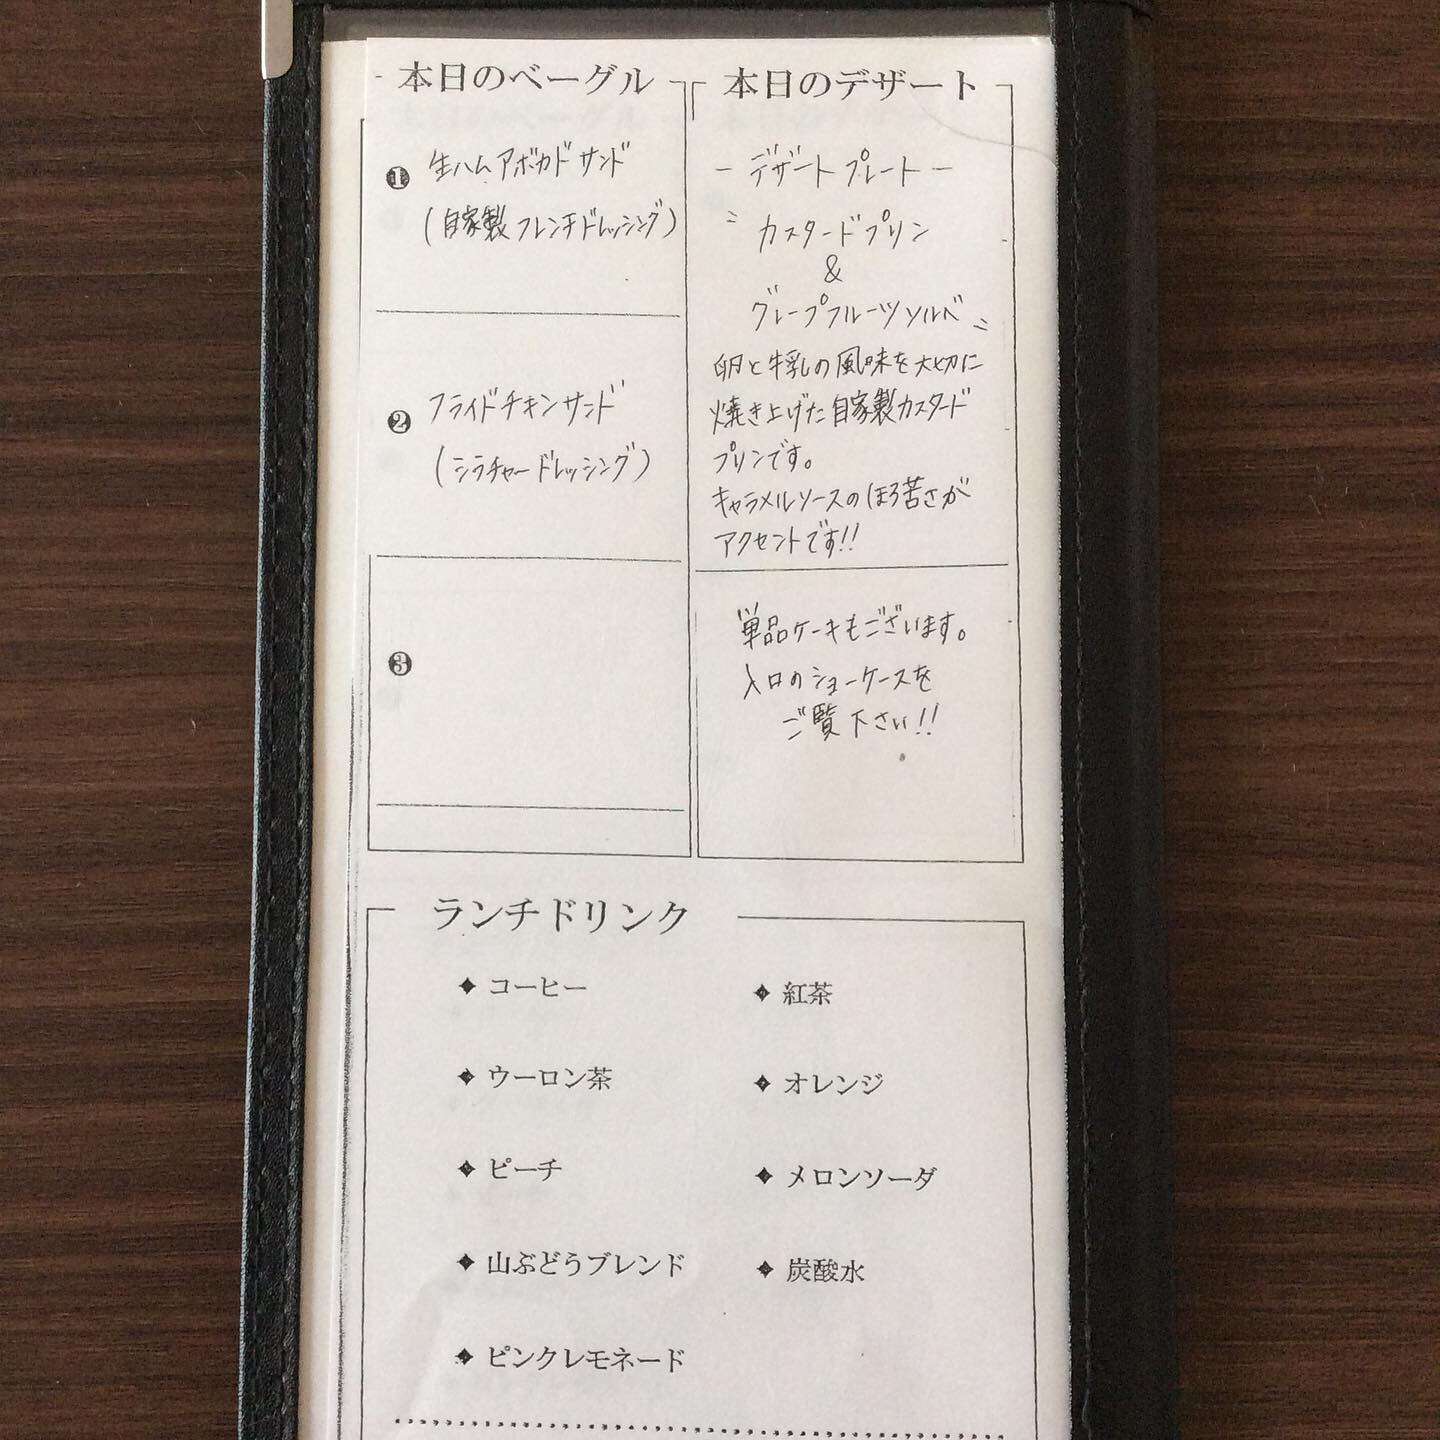 本日のベーグル
❶ 生ハムアボカドサンド
(自家製フレンチドレッシング)
❷ フライドチキンサンド
(シラチャードレッシング)
❸
本日のデザート
－デザートプレート－
〃カスタードプリン
&
グレープフルーツソルベ〃
卵と牛乳の風味を大切に
焼き上げた自家製カスタード
プリンです。
キャラメルソースのほろ苦さが
アクセントです!!
単品ケーキもございます。
入口のショーケースを
ご覧下さい!!
ランチドリンク
◆ コーヒー
◆ 紅茶
◆ ウーロン茶
◆ オレンジ
◆ ピーチ
◆ メロンソーダ
◆ 山ぶどうブレンド
◆ 炭酸水
◆ ピンクレモネード